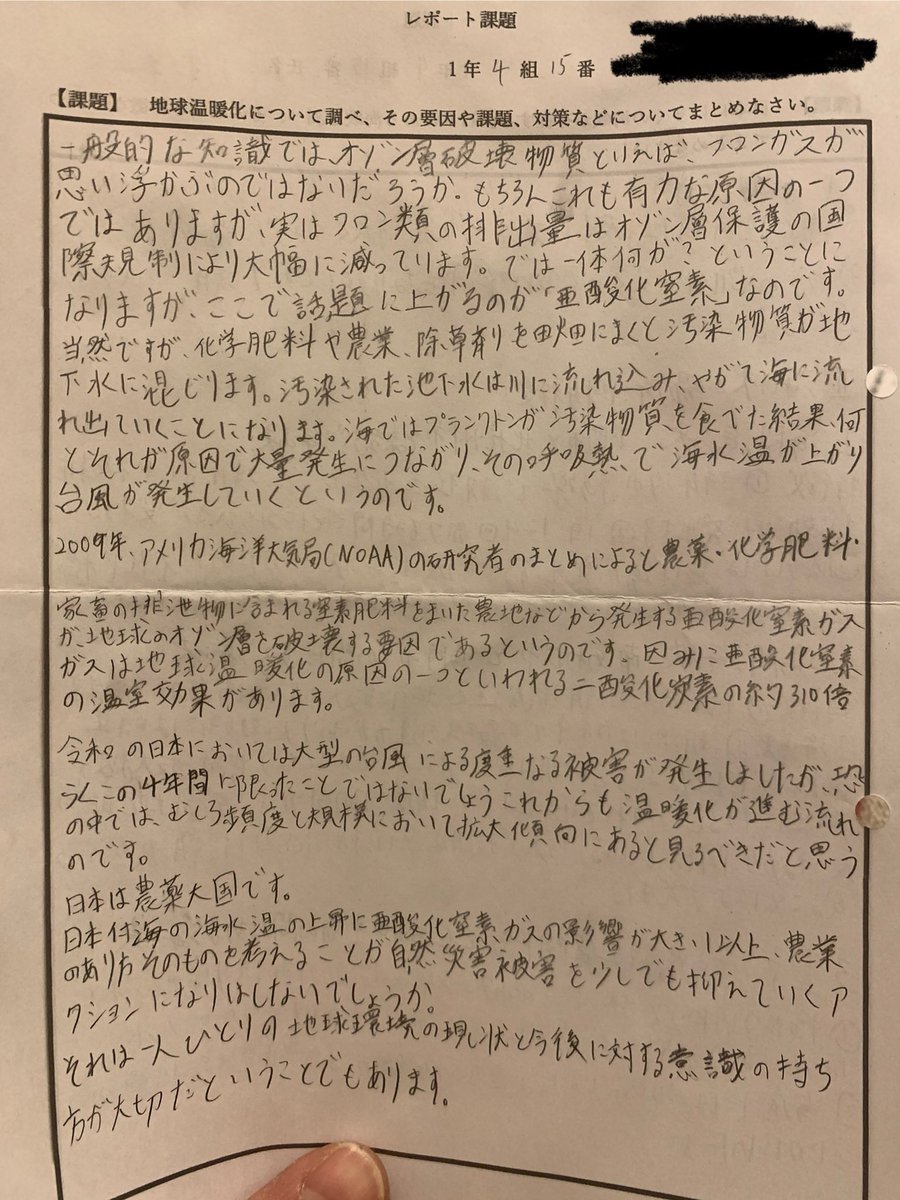 レポート課題
1年 4 組 15 番
【課題】 地球温暖化について調べ、その要因や課題、対策などについてまとめなさい。
一般的な知識では、オゾン層破壊物質といえば、フロンガスが
思い浮かぶのではないだろうか。もちろんこれも有力な原因の一つ
ではありますが、実はフロン類の排出量はオゾン層保護の国
際規制により大幅に減っています。では一体何が?ということに
なりますが、ここで話題に上がるのが「亜酸化窒素」なのです。
当然ですが、化学肥料や農業、除草剤を田畑にまくと汚染物質が地
下水に混じります。汚染された池下水は川に流れ込み、やがて海に流
れ出ていくことになります。海ではプランクトンが汚染物質を食べた結果、何
とそれが原因で大量発生につながり、その呼吸熱で海水温が上がり
台風が発生していくというのです。
2009年、アメリカ海洋大気局(NOAA)の研究者のまとめによると農薬・化学肥料・
家畜の排泄物に含まれる窒素肥料をまいた農地などから発生する亜酸化窒素ガス
が、地球のオゾン層を破壊する要因であるというのです。因みに亜酸化窒素
ガスは地球温暖化の原因の一つといわれる二酸化炭素の約310倍
の温室効果があります。
令和の日本においては大型の台風による度重なる被害が発生しましたが、恐
らくこの4年間に限ったことではないでしょうこれからも温暖化が進む流れ
の中では、むしろ頻度と規模において拡大傾向にあると見るべきだと思う
のです。
日本は農薬大国です。
日本付海の海水温の上昇に亜酸化窒素ガスの影響が大きい以上、農業
のあり方そのものを考えることが自然災害被害を少しでも抑えていくア
クションになりはしないでしょうか。
それは一人ひとりの地球環境の現状と今後に対する意識の持ち
方が大切だということでもあります。